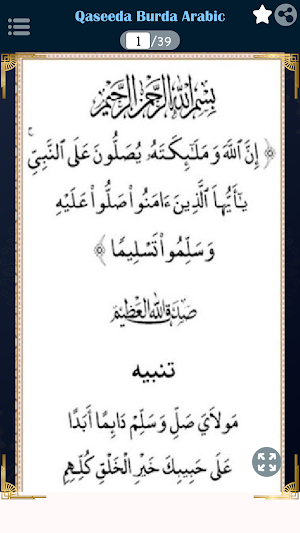 Qaseeda Burda Arabic
1 /39
بِسْمِ اللهِ الرَّحْمٰنِ الرَّحِيْمِ
﴿ إِنَّ ٱللَّهَ وَمَلَٰٓئِكَتَهُۥ يُصَلُّونَ عَلَى ٱلنَّبِيِّ ۚ
يَٰٓأَيُّهَا ٱلَّذِينَ ءَامَنُوا۟ صَلُّوا۟ عَلَيْهِ
وَسَلِّمُوا۟ تَسْلِيمًا ﴾
صَدَقَ اللهُ العَظِيْم
تنبيه
مَوْلَايَ صَلِّ وَسَلِّمْ دَائِمًا أَبَدًا
عَلَى حَبِيبِكَ خَيْرِ الْخَلْقِ كُلِّهِمِ